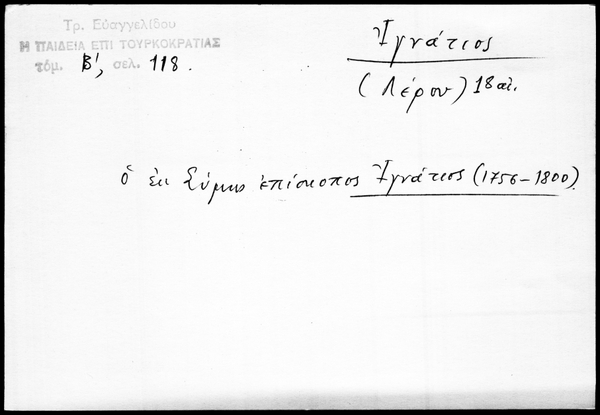 Τρ. Εὐαγγελίδου
Η ΠΑΙΔΕΙΑ ΕΠΙ ΤΟΥΡΚΟΚΡΑΤΙΑΣ
τόμ. Β', σελ. 118.
Ἰγνάτιος
(Λέρου) 18 αἰ.
ὁ ἐκ Σύμης ἐπίσκοπος Ἰγνάτιος (1756-1800)